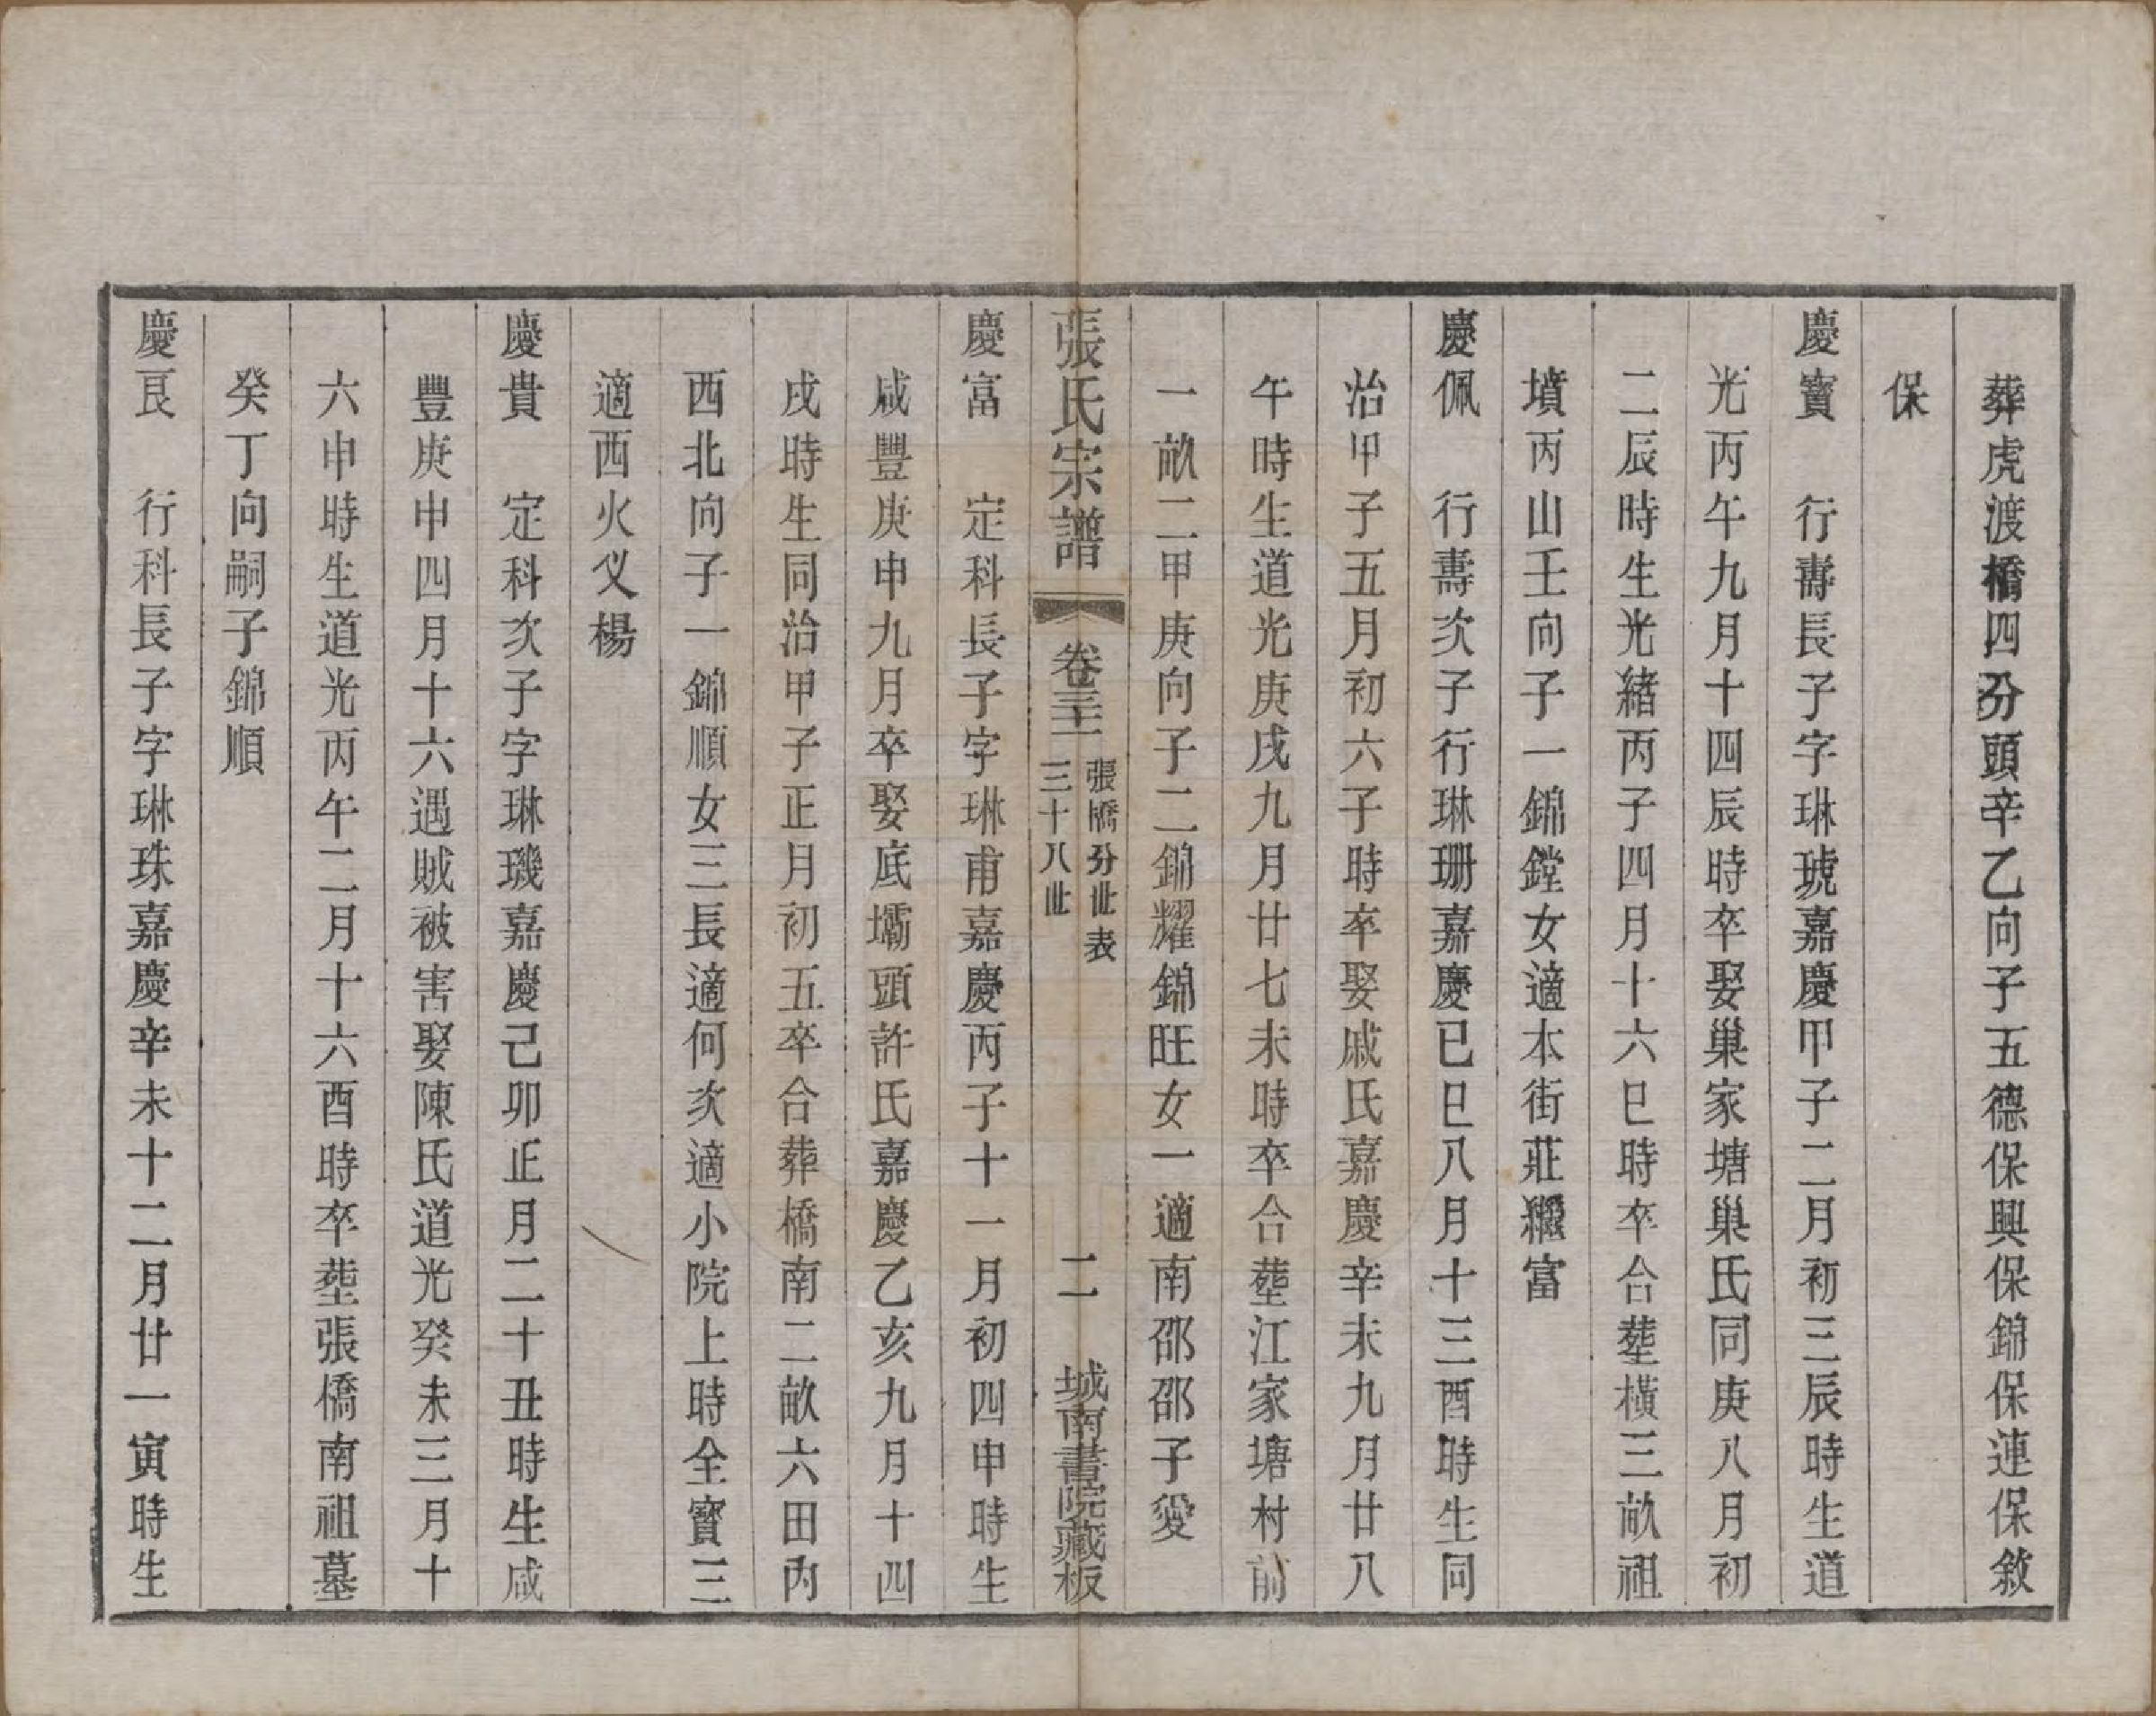 葬虎渡橋四分頭辛乙向子五德保興保錦保連保敘
保
慶寶　行壽長子字琳琥嘉慶甲子二月初三辰時生道
光丙午九月十四辰時卒娶巢家塘巢氏同庚八月初
二辰時生光緒丙子四月十六巳時卒合塟橫三畝祖
墳丙山壬向子一錦鏜女適本街莊繼富
慶佩　行壽次子行琳珊嘉慶已巳八月十三酉時生同
治甲子五月初六子時卒娶戚氏嘉慶辛未九月廿八
午時生道光庚戌九月廿七未時卒合塟江家塘村前
一畝二甲庚向子二錦耀錦旺女一適南邵邵子愛
張氏宗譜　卷三十二　張橋分世表　三十八世　二　城南書院藏板
慶富　定科長子字琳甫嘉慶丙子十一月初四申時生
咸豐庚申九月卒娶底壩頭許氏嘉慶乙亥九月十四
戌時生同治甲子正月初五卒合葬橋南二畝六田內
西北向子一錦順女三長適何次適小院上時全寶三
適西火义楊
慶貴　定科次子字琳璣嘉慶己卯正月二十丑時生咸
豐庚申四月十六遇賊被害娶陳氏道光癸未三月十
六申時生道光丙午二月十六酉時卒塟張橋南祖墓
癸丁向嗣子錦順
慶良　行科長子字琳珠嘉慶辛未十二月廿一寅時生